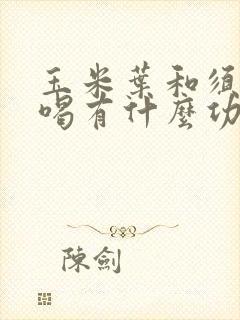 玉米葉和須
喝有什麼功
陳劍